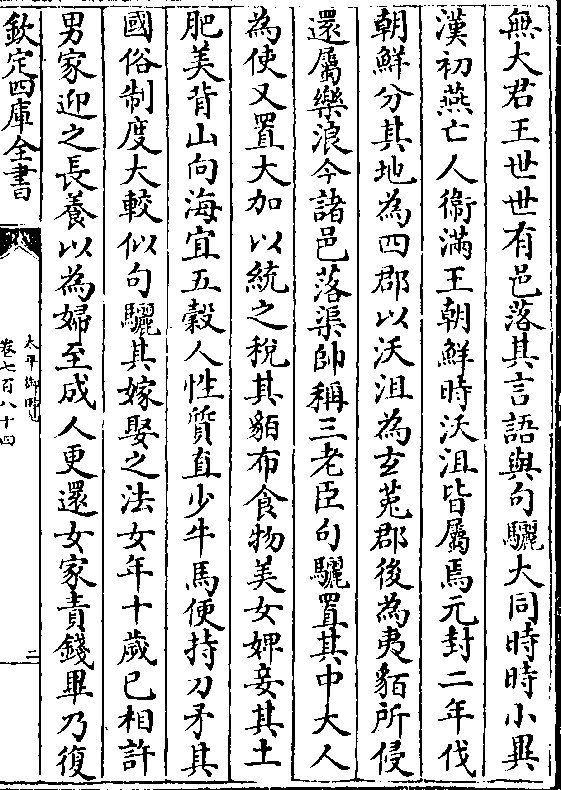 無大君王世世有邑落其言語與句驪大同時時小異
漢初燕亡人衞滿王朝鮮時沃沮皆屬焉元封二年伐
朝鮮分其地為四郡以沃沮為玄菟郡後為夷貊所侵
還屬樂浪今諸邑落渠帥稱三老臣句驪置其中大人
為使又置大加以統之稅其貊布食物美女婢妾其土
肥美背山向海宜五穀人性質直少牛馬便持刀矛其
國俗制度大較似句驪其嫁娶之法女年十歲已相許
男家迎之長養以為婦至成人更還女家責錢畢乃復
欽定四庫全書
太平御覽
卷七百八十四
二